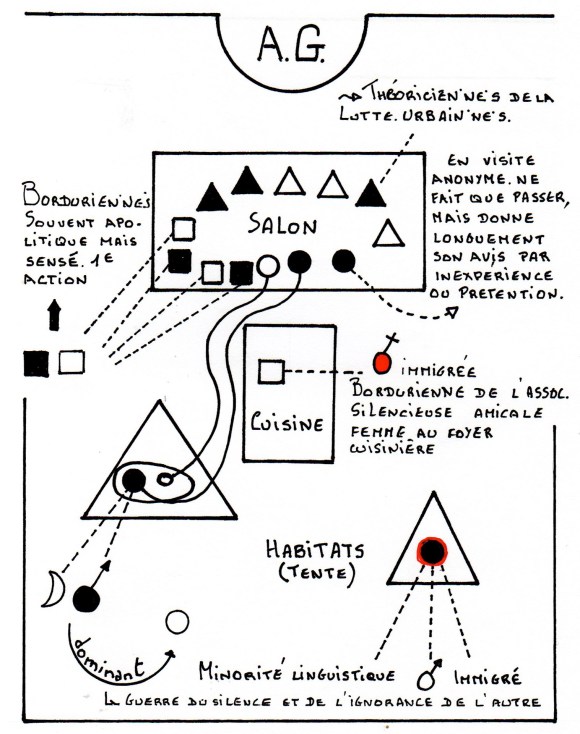 A.G.
↝ THÉORICIEN·NE·S DE LA
LUTTE.URBAIN·NE·S.
EN VISITE
ANONYME. NE
FAIT QUE PASSER,
MAIS DONNE
LONGUEMENT
SON AVIS PAR
INEXPERIENCE
OU PRETENTION.
BORDURIEN·NE·S
SOUVENT APO-
LITIQUE MAIS
SENSÉ. 1E
ACTION
SALON
CUISINE
IMMIGRÉE
BORDURIENNE DE L'ASSOC.
SILENCIEUSE AMICALE
FEMME AU FOYER
CUISINIÈRE
HABITATS
(TENTE)
dominant
MINORITÉ LINGUISTIQUE
IMMIGRÉ
LA GUERRE DU SILENCE ET DE L'IGNORANCE DE L'AUTRE